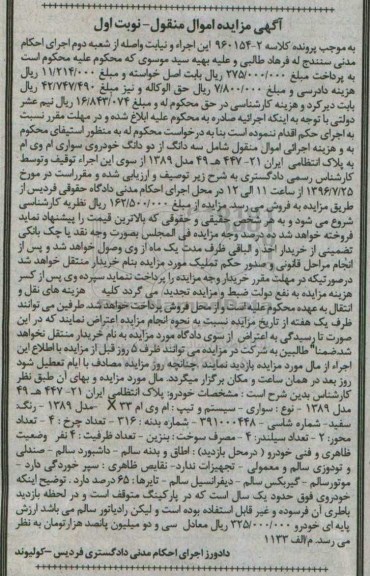 آگهی مزایده اموال منقول- نوبت اول
به موجب پرونده کلاسه ۲-۹۶۰۱۵۴ این اجراء و نیابت واصله از شعبه دوم اجرای احکام
مدنی سنندج له فرهاد طالبی و علیه بهیه سید موسوی که محکوم علیه محکوم است
به پرداخت مبلغ ۲۷۵/۰۰۰/۰۰۰ ریال بابت اصل خواسته و مبلغ ۱۱/۲۱۴/۰۰۰ ریال
هزینه دادرسی و مبلغ ۷/۸۰۰/۰۰۰ ریال حق الوکاله و نیز مبلغ ۴۲/۷۴۷/۴۹۰ ریال
بابت دیرکرد و هزینه کارشناسی در حق محکوم له و مبلغ ۱۶/۸۴۳/۰۷۴ ریال نیم عشر
دولتی با توجه به اینکه اجرائیه صادره به محکوم علیه ابلاغ شده و در مهلت مقرر نسبت
به اجرای حکم اقدام ننموده است بنا به درخواست محکوم له به منظور استیفای محکوم
به و هزینه اجرائی اموال منقول شامل سه دانگ از دو دانگ خودروی سواری ام وی ام
به پلاک انتظامی ایران ۲۱- ۴۴۷ هـ ۴۹ مدل ۱۳۸۹ از سوی این اجراء توقیف وتوسط
کارشناس رسمی دادگستری به شرح زیر توصیف و ارزیابی شده و مقرراست در مورخ
۱۳۹۶/۷/۲۵ از ساعت ۱۱ الی ۱۲ در محل اجرای احکام مدنی دادگاه حقوقی فردیس از
طریق مزایده به فروش می رسد. مزایده از مبلغ ۱۶۲/۵۰۰/۰۰۰ ریال نظریه کارشناسی
شروع می شود و به هر شخص حقیقی و حقوقی که بالاترین قیمت را پیشنهاد نماید
فروخته خواهد شد ده درصد وجه مزایده فی المجلس بصورت وجه نقد یا چک بانکی
تضمینی از خریدار اخذ و الباقی ظرف مدت یک ماه از وی وصول خواهد شد و پس از
انجام مراحل قانونی و صدور حکم تملیک مورد مزایده بنام خریدار منتقل خواهد شد
درصورتیکه در مهلت مقرر خریدار وجه مزایده را پرداخت ننماید سپرده وی پس از کسر
هزینه مزایده به نفع دولت ضبط و مزایده تجدید می گردد کلیه هزینه های نقل و
انتقال به عهده محکوم علیه است و از محل فروش پرداخت خواهد شد. طرفین می توانند
ظرف یک هفته از تاریخ مزایده نسبت به نحوه انجام مزایده اعتراض نمایند که در این
صورت تا رسیدگی به اعتراض از سوی دادگاه مورد مزایده به نام خریدار منتقل نخواهد
شد. ضمنا" طالبین به شرکت در مزایده می توانند ظرف ۵ روز قبل از مزایده با اطلاع این
اجراء از مال مورد مزایده بازدید نمایند. چنانچه روز مزایده مصادف با ایام تعطیل شود
روز بعد در همان ساعت و مکان برگزار میگردد. مال مورد مزایده و بهای آن طبق نظر
کارشناس بدین شرح است : مشخصات خودرو: پلاک انتظامی ایران ۲۱- ۴۴۷ هـ ۴۹
مدل ۱۳۸۹ - نوع : سواری - سیستم و تیپ : ام وی ام X ۳۳ -مدل ۱۳۸۹ - رنگ:
سفید- شماره شاسی : ۳۹۱۰۰۰۴۴۸ - شماره بدنه : ۳۱۶ - تعداد چرخ : ۴ - تعداد
محور: ۲ - تعداد سیلندر: ۴ - مصرف سوخت : بنزین - تعداد ظرفیت : ۴ نفر وضعیت
ظاهری و فنی خودرو ( درمحل بازدید) : اطاق و بدنه سالم - داشبورد سالم - صندلی
و تودوزی سالم و معمولی - تجهیزات ندارد- نقایص ظاهری : سپر خوردگی دارد -
موتورسالم - گیربکس سالم - دیفرانسیل سالم - تایرها : ۶۵ درصد دارد. توضیح اینکه
خودروی فوق حدود یک سال است که در پارکینگ متوقف است و در لحظه بازدید
باطری آن فرسوده و غیر قابل استفاده بوده است و لیکن رادیاتور سالم می باشد ارزش
پایه ای خودرو ۳۲۵/۰۰۰/۰۰۰ ریال معادل سی و دو میلیون پانصد هزارتومان به نظر
می رسد. م/الف ۱۱۳۳
دادورز اجرای احکام مدنی دادگستری فردیس -کولیوند